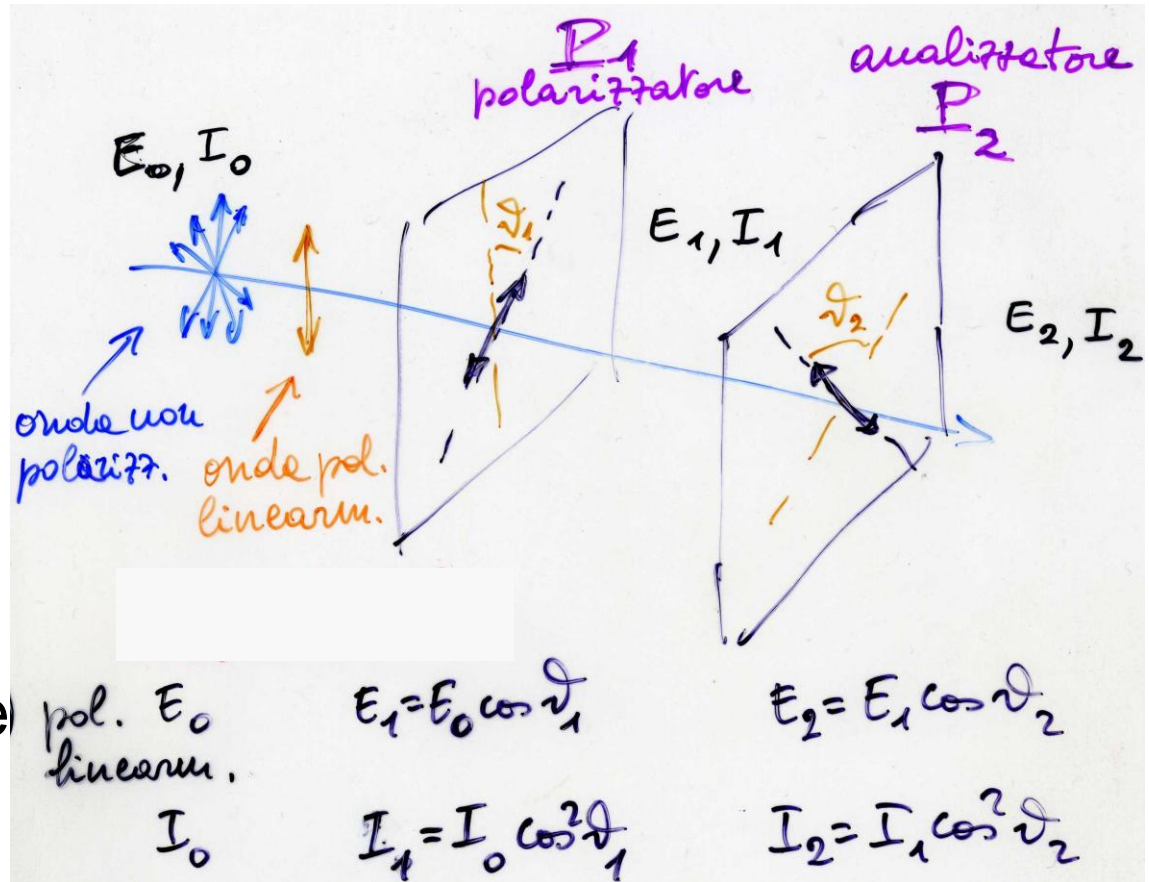 P1
polarizzatore
analizzatore
P2
E0, I0
ϑ1
E1, I1
ϑ2
E2, I2
onda non
polarizz.
onda pol.
linearm.
e)
pol. linearm.
E0 E1 = E0 cos ϑ1 E2 = E1 cos ϑ2
I0 I1 = I0 cos²ϑ1 I2 = I1 cos²ϑ2